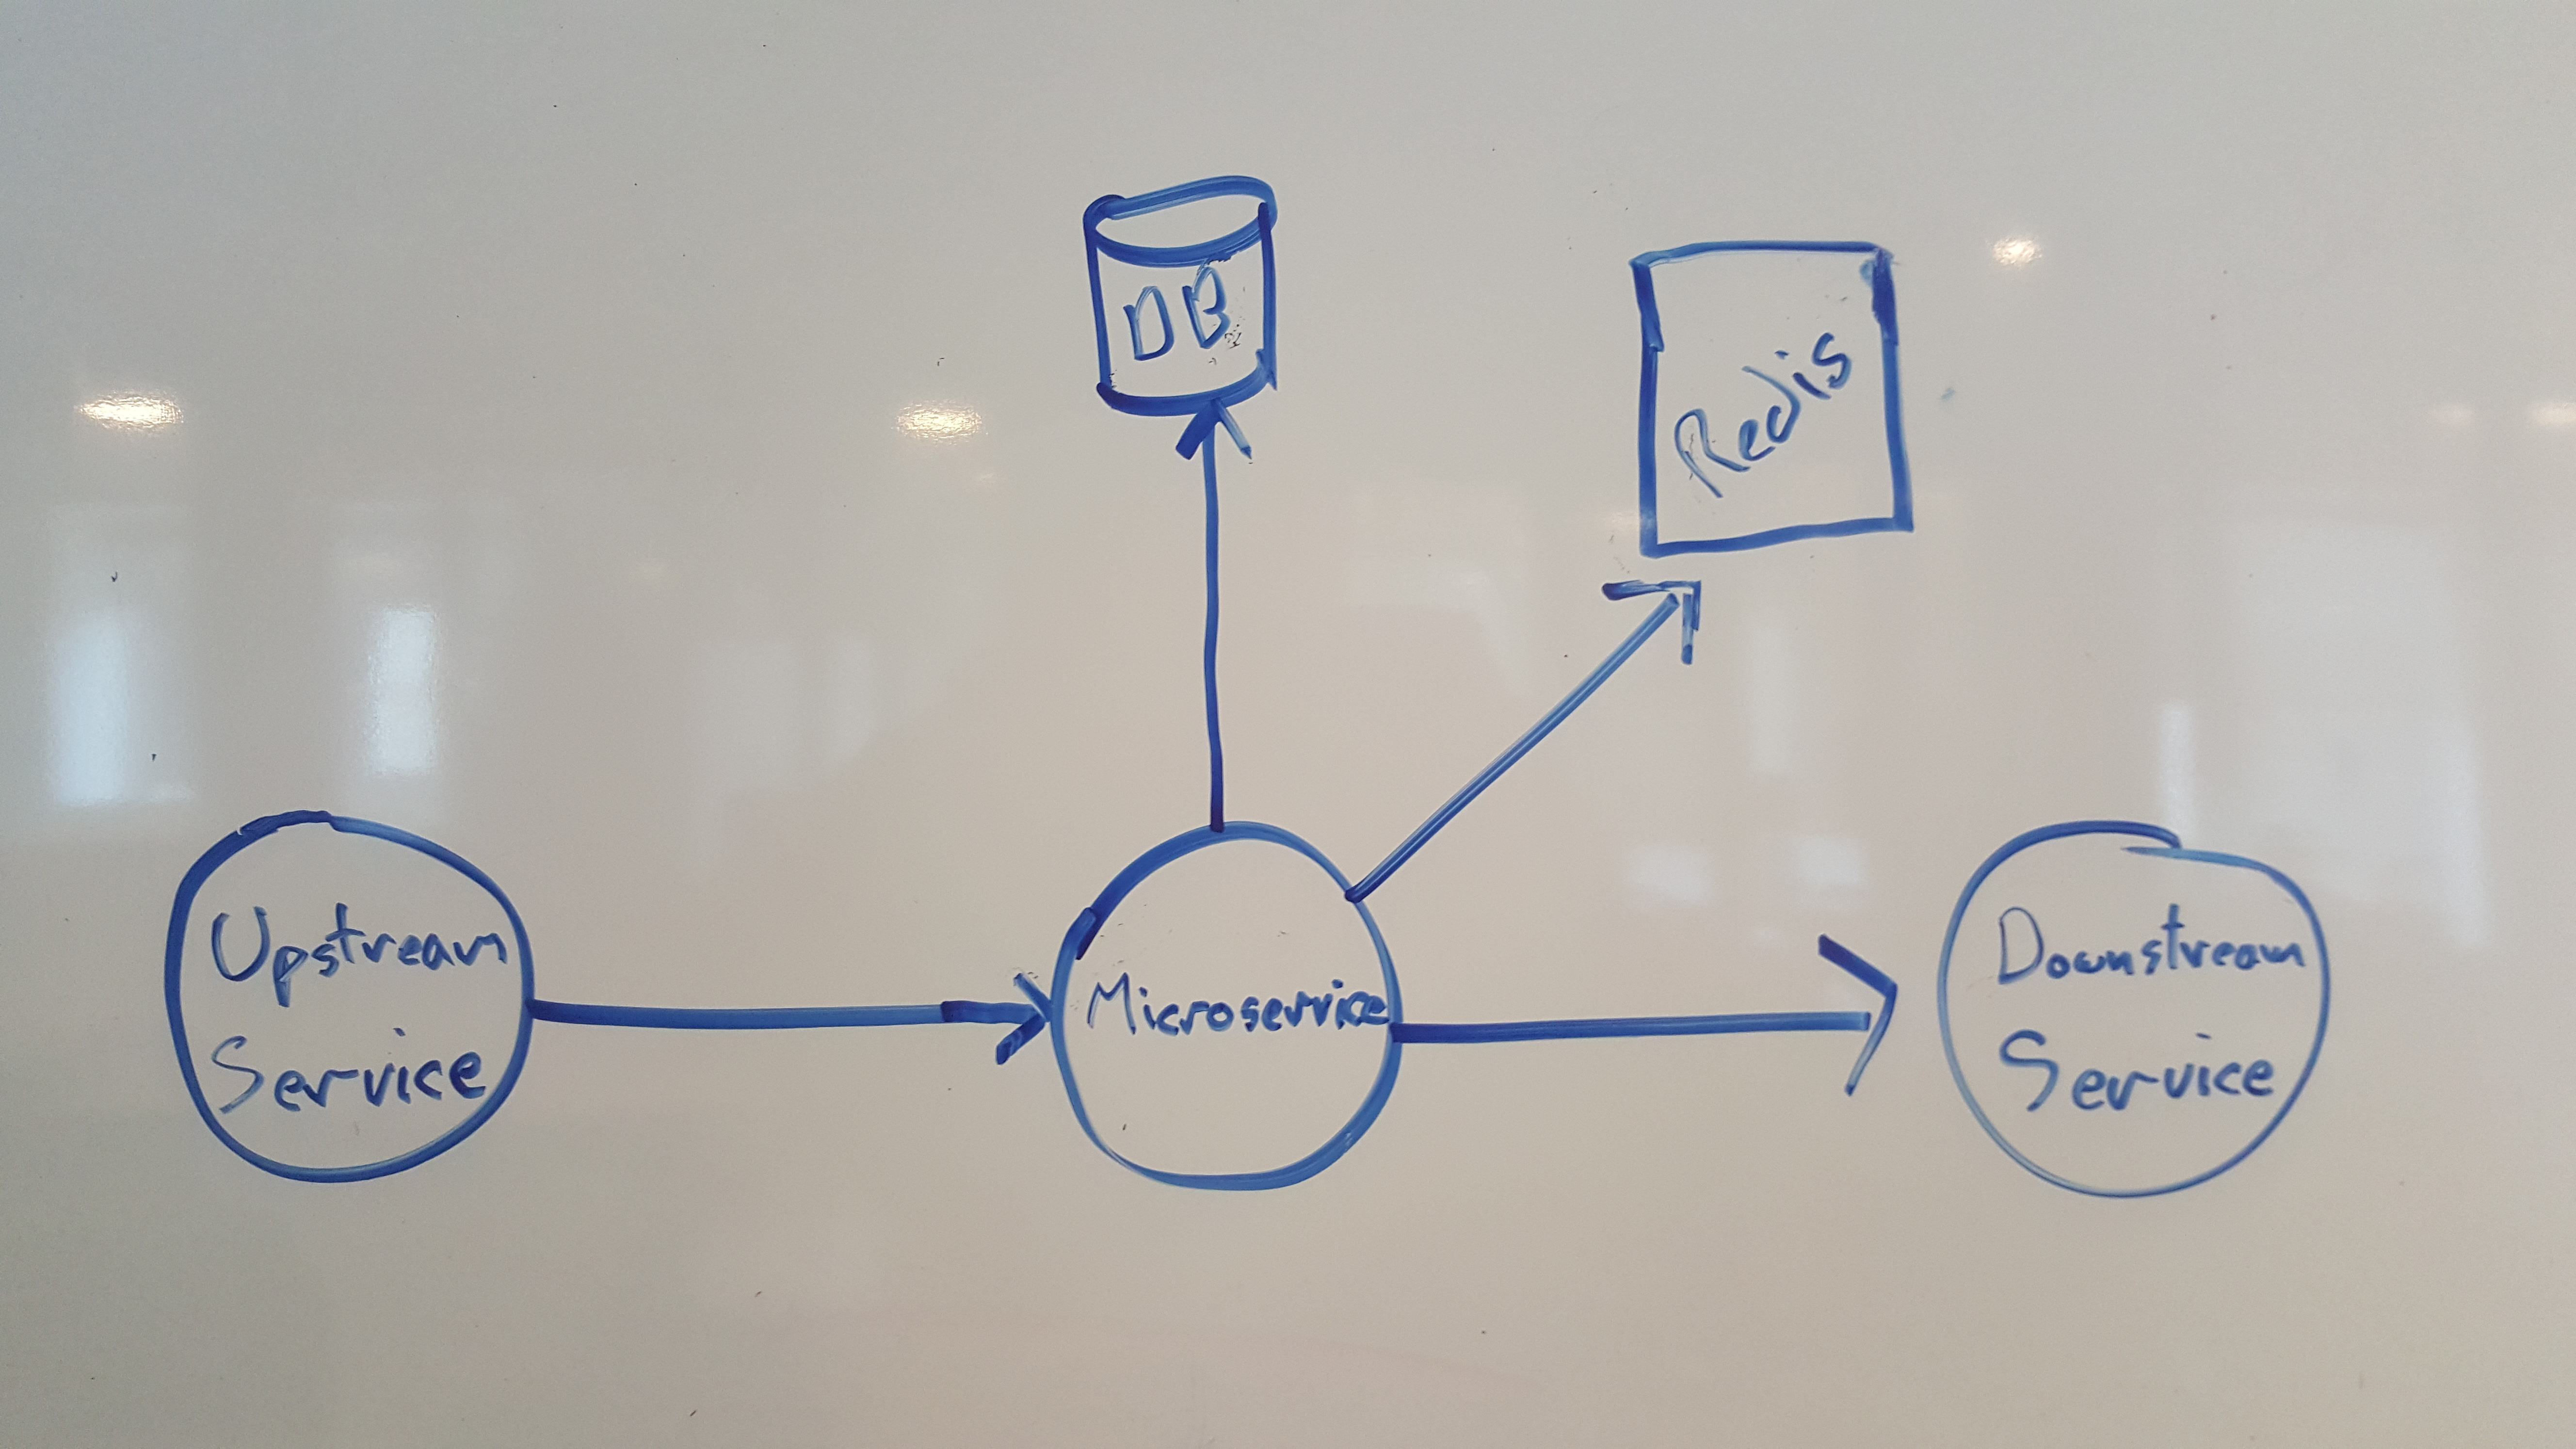 DB
Redis
Upstream
Service
Microservice
Downstream
Service